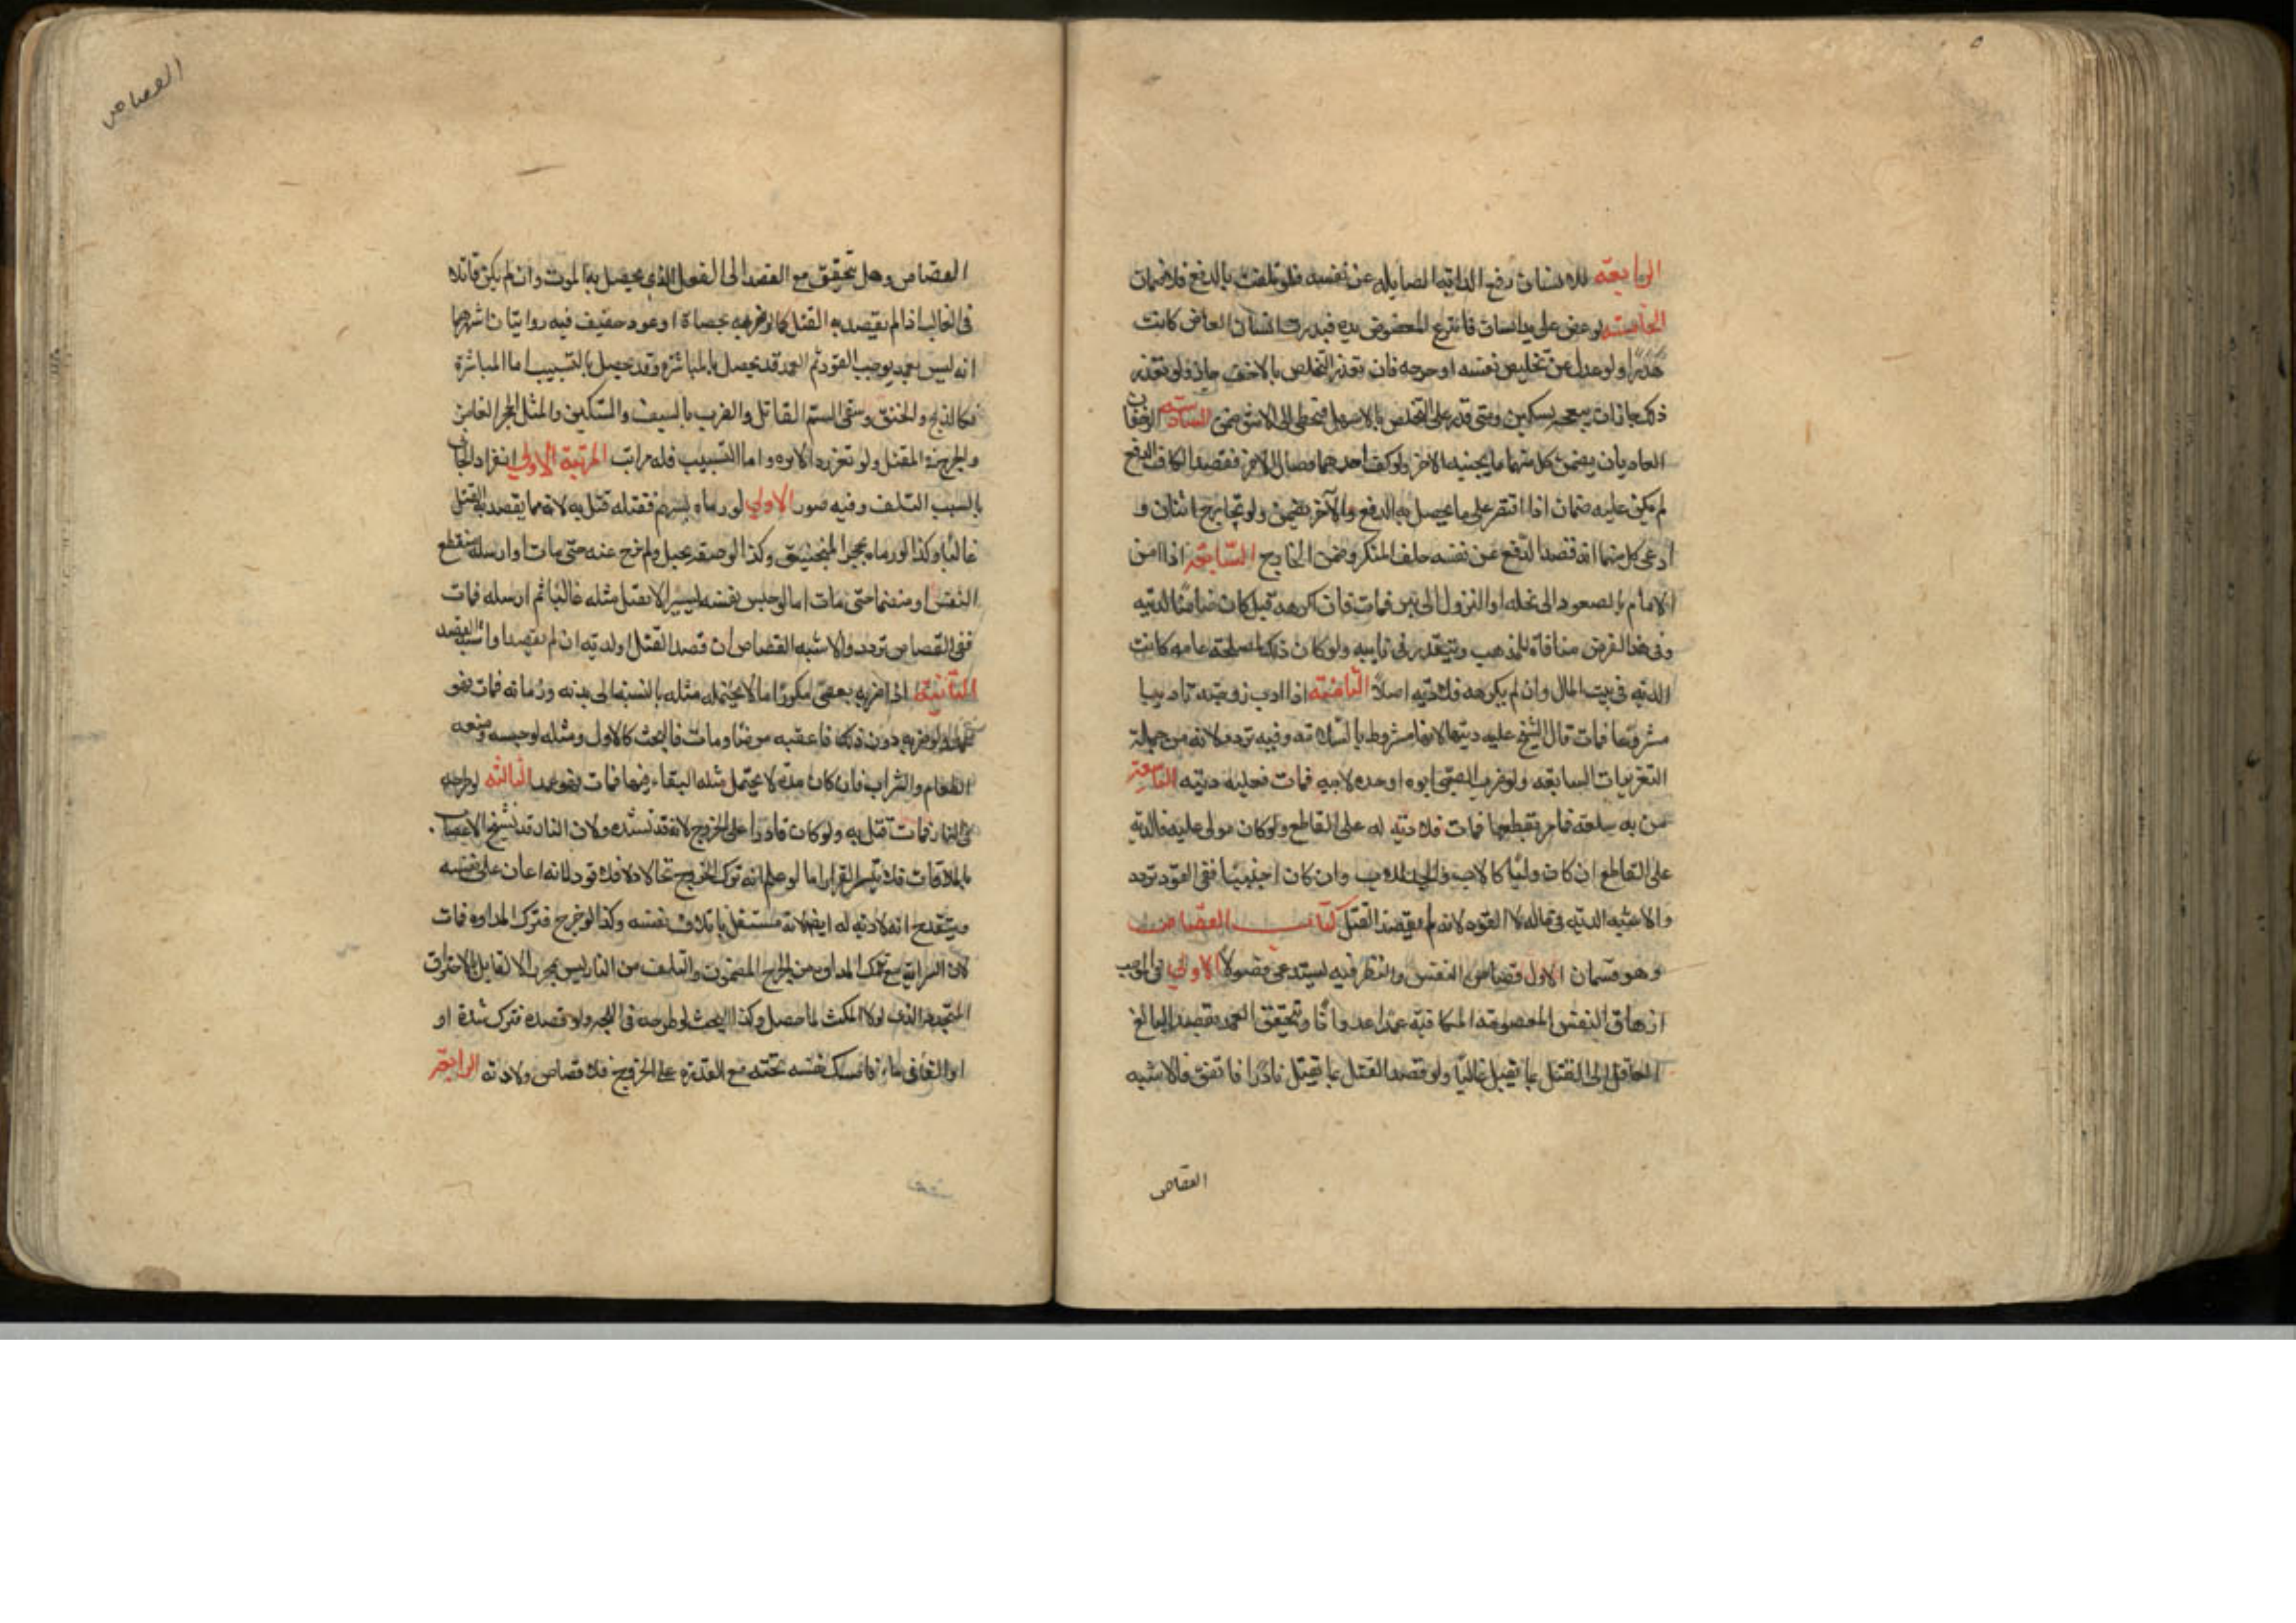 الرابعة للانسان دفع الدابة الصايلة عن نفسه فلو تلفت بالدفع فلا ضمان
الخامسة لو عض على يد انسان فانتزع المعضوض يده فندرت اسنان العاض كانت
هدرا ولو عدل عن تخليص نفسه او جرحه فان تعذر التخلص بالاخف جاز فلو تعذر
ذلك جاز ان يبعجه بسكين ومتى قدر على التخلص بالاسهل فتخطى الى الاشق ضمن السادسة الزحفان
العاديان يضمن كل منهما ما يجنيه الاخر ولو كف احدهما فصال الاخر فقصد الكاف الدفع
لم يكن عليه ضمان اذا اقتصر على ما يحصل به الدفع والآخر يضمن ولو تجارح اثنان و
ادعى كل منهما انه قصد الدفع عن نفسه حلف المنكر وضمن الجارح السابعة اذا امن
الامام بالصعود الى نخلة او النزول الى بئر فمات فان اكرهه قيل كان ضامنا لديته
وفي هذا الفرض منافاة للمذهب ويتقدر في نايبه ولو كان ذلك لمصلحة عامه كانت
الدية في بيت المال وان لم يكرهه فلا دية اصلا الثامنة اذا ادب زوجته تاديبا
مشروعا فمات قال الشيخ عليه ديتها لانه مشروط بالسلامة وفيه تردد لانه من جملة
التعزيرات السايغه ولو ضرب الصبي ابوه او جده لابيه فمات فعليه ديته التاسعة
من به سلعة فامر بقطعها فمات فلا دية له على القاطع ولو كان مولى عليه فالدية
على القاطع ان كان وليا كالاب والجد للاب وان كان اجنبيا ففي القود تردد
والاشبه الدية في ماله لا القود لانه لم يقصد القتل كتاب القصاص
وهو قسمان الاول قصاص النفس والنظر فيه يستدعي فصولا الاول في الموجب
ازهاق النفس المعصومة المكافئة عمدا عدوانا ويتحقق العمد بقصد البالغ
العاقل الى القتل بما يقتل غالبا ولو قصد القتل بما يقتل نادرا فاتفق فالاشبه
القصاص
القصاص
القصاص وهل يتحقق مع القصد الى الفعل الذي يحصل به الموت وان لم يكن قاتلا
في الغالب اذا لم يقصد به القتل كما لو ضربه بحصاة او عود خفيف فيه روايتان اشهرهما
انه ليس بعمد يوجب القود ثم العمد قد يحصل بالمباشرة وقد يحصل بالتسبيب اما المباشرة
فكالذبح والخنق وسقي السم القاتل والضرب بالسيف والسكين والمثقل الحجر الغامز
والجرح في المقتل ولو بغرز الابره واما التسبيب فله مراتب المرتبة الاولى انفراد الجاني
بالسبب المتلف وفيه صور الاولى لو رماه بسهم فقتله قتل به لانه مما يقصد به القتل
غالبا وكذا لو رماه بحجر المنجنيق وكذا لو خنقه بحبل ولم يرخ عنه حتى مات او ارسله منقطع
النفس او ضمنا حتى مات اما لو حبس نفسه يسيرا لا يقتل مثله غالبا ثم ارسله فمات
ففي القصاص تردد والاشبه القصاص ان قصد القتل او لدية ان لم يقصد او اشتبه القصد
الثانية اذا ضربه بعصى مكررا ما لا يحتمله مثله بالنسبة الى بدنه وزمانه فمات فهو
عمد ولو ضربه دون ذلك فاعقبه مرضا ومات فالبحث كالاول ومثله لو حبسه ومنعه
الطعام والشراب فان كان مدة لا يحتمل مثله البقاء فيها فمات فهو عمد الثالثة لو طرحه
في النار فمات قتل به ولو كان قادرا على الخروج لانه قد يشده ولان النار قد تشنج الاعصاب
بالملاقات فلا يتيسر الفرار اما لو علم انه ترك الخروج تخاذلا فلا قود لانه اعان على نفسه
وينقدح انه لا دية له ايضا لانه مستقل باتلاف نفسه وكذا لو جرح فترك المداوه فمات
لان السراية مع ترك المداوة من الجرح المضمون والتلف من النار ليس بمجرد الالقاء بل بالاحتراق
المتجدد الذي لولا المكث لما حصل وكذا البحث لو طرحه في اللجه ولو فصده فترك شده او
او القاه في ماء فامسك نفسه تحته مع القدرة على الخروج فلا قصاص ولا دية الرابعة